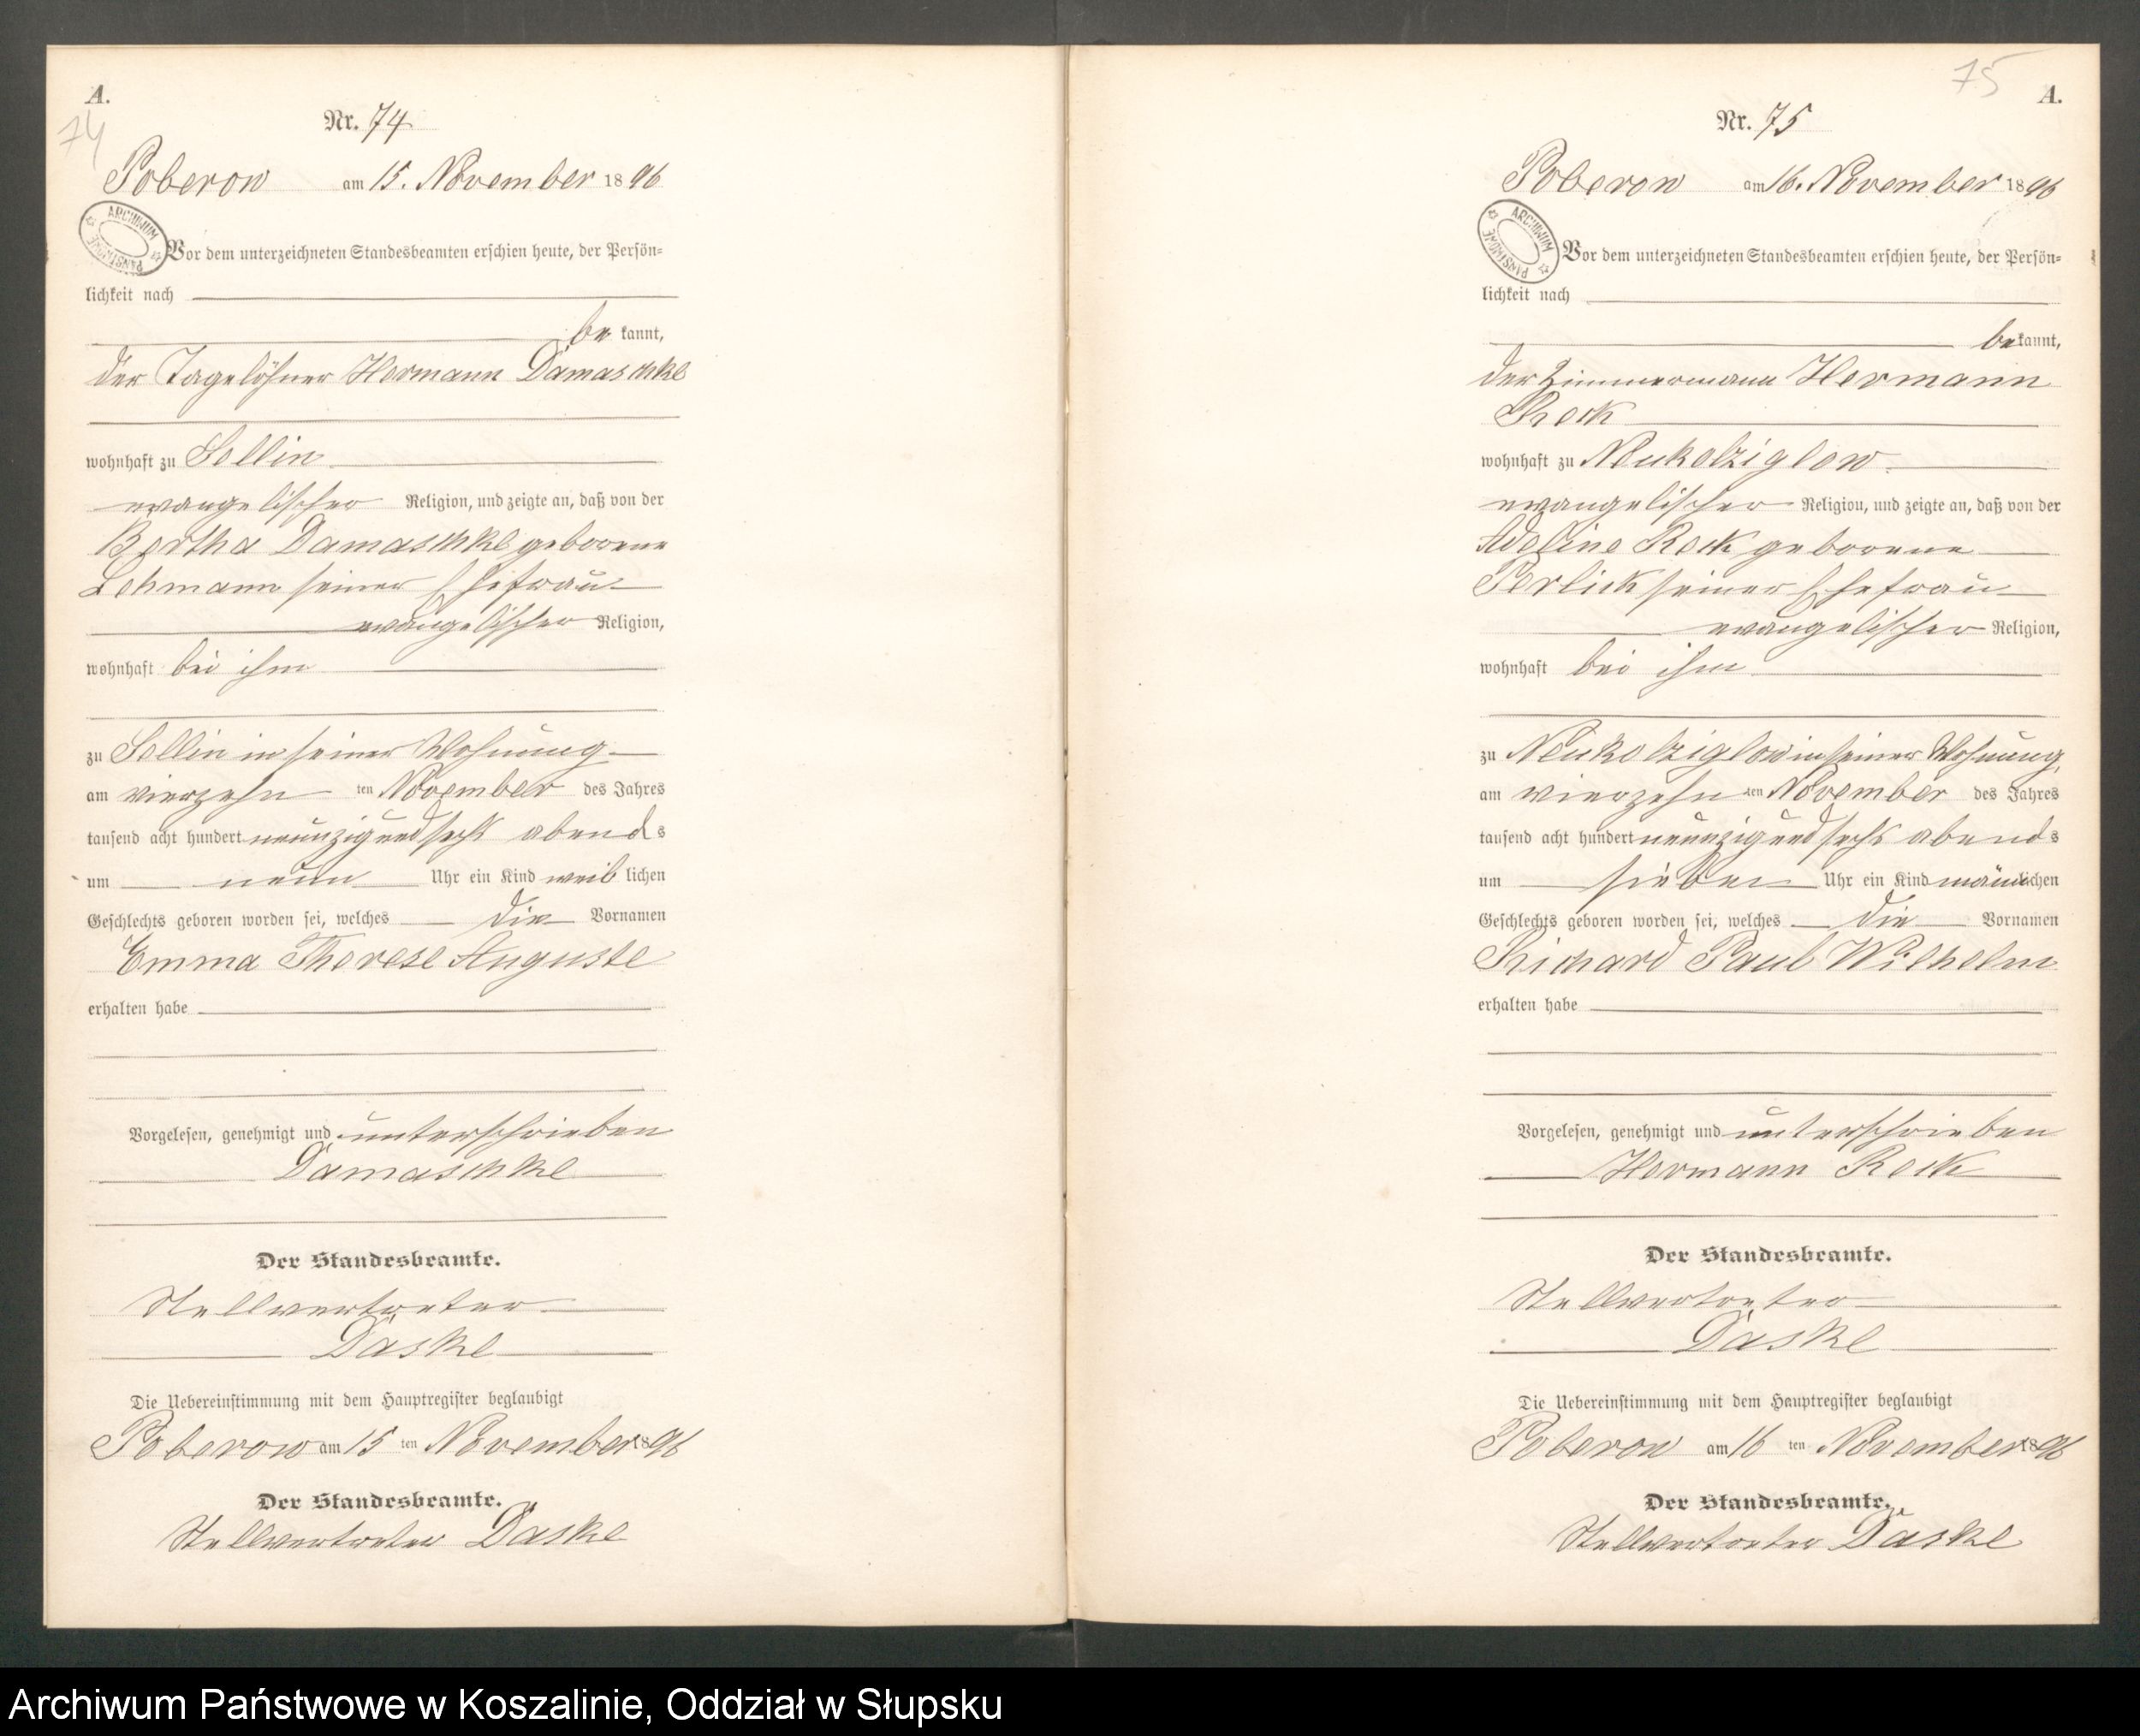 A.
74
Nr. 74
Poberow am 15. November 1896
ARCHIWUM PAŃSTWOWE
Vor dem unterzeichneten Standesbeamten erschien heute, der Persön=
lichkeit nach
be kannt,
der Tagelöhner Hermann Damaschke
wohnhaft zu Sellin
evangelischer Religion, und zeigte an, daß von der
Bertha Damaschke geborene
Lehmann seiner Ehefrau
evangelischer Religion,
wohnhaft bei ihm
zu Sellin in seiner Wohnung
am vierzehn ten November des Jahres
tausend acht hundert neunzig und sechs abends
um neun Uhr ein Kind weiblichen
Geschlechts geboren worden sei, welches die Vornamen
Emma Therese Auguste
erhalten habe
Vorgelesen, genehmigt und unterschrieben
Damaschke
Der Standesbeamte.
Stellvertreter
Daske
Die Uebereinstimmung mit dem Hauptregister beglaubigt
Poberow am 15 ten November 1896
Der Standesbeamte.
Stellvertreter Daske
75
A.
Nr. 75
Poberow am 16. November 1896
ARCHIWUM PAŃSTWOWE
Vor dem unterzeichneten Standesbeamten erschien heute, der Persön=
lichkeit nach
bekannt,
der Zimmermann Hermann
Reck
wohnhaft zu Neukolziglow
evangelischer Religion, und zeigte an, daß von der
Adeline Reck geborene
Perlick seiner Ehefrau
evangelischer Religion,
wohnhaft bei ihm
zu Neukolziglow in seiner Wohnung
am vierzehn ten November des Jahres
tausend acht hundert neunzig und sechs abends
um sieben Uhr ein Kind männlichen
Geschlechts geboren worden sei, welches die Vornamen
Richard Paul Wilhelm
erhalten habe
Vorgelesen, genehmigt und unterschrieben
Hermann Reck
Der Standesbeamte.
Stellvertreter
Daske
Die Uebereinstimmung mit dem Hauptregister beglaubigt
Poberow am 16 ten November 1896
Der Standesbeamte.
Stellvertreter Daske
Archiwum Państwowe w Koszalinie, Oddział w Słupsku